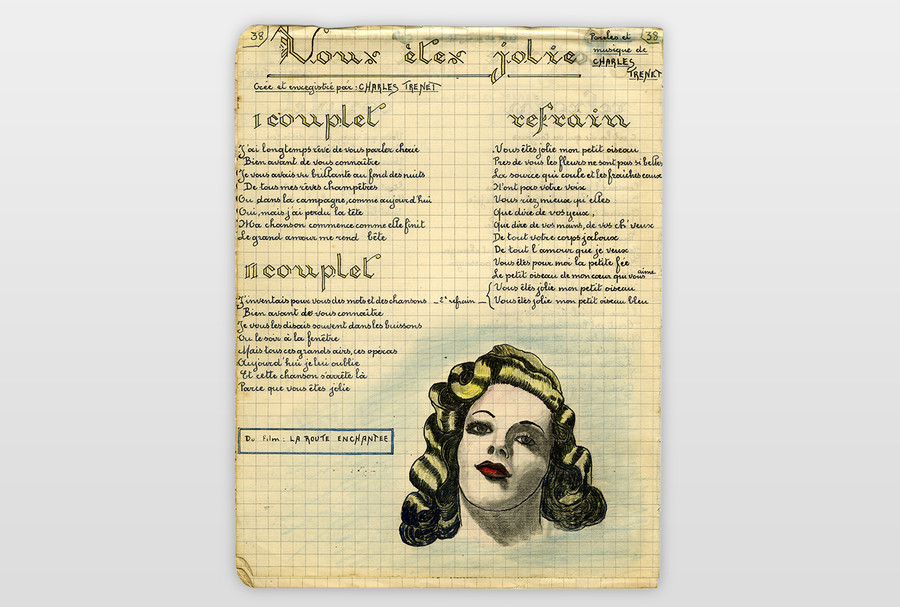 38
Vous êtes jolie
Paroles et
musique de
CHARLES
TRENET
38
Créé et enregistré par : CHARLES TRENET
I couplet
J'ai longtemps rêvé de vous parler cherie
Bien avant de vous connaître
Je vous avais vu brillante au fond des nuits
De tous mes rêves champêtres
Ou dans la campagne, comme aujourd'hui
Oui, mais j'ai perdu la tête
Ma chanson commence comme elle finit
Le grand amour me rend bête
II couplet
J'inventais pour vous des mots et des chansons
Bien avant de vous connaître
Je vous les disais souvent dans les buissons
Ou le soir à la fenêtre
Mais tous ces grands airs, ces opéras
Aujourd'hui je les oublie
Et cette chanson s'arrête là
Parce que vous êtes jolie
Du Film : LA ROUTE ENCHANTEE
refrain
Vous êtes jolie mon petit oiseau
Pres de vous les fleurs ne sont pas si belles
La source qui coule et les fraîches eaux
N'ont pas votre voix
Vous riez, mieux qu'elles
Que dire de vos yeux,
Que dire de vos mains, de vos ch'veux
De tout votre corps jaloux
De tout l'amour que je veux
Vous êtes pour moi la petite fée
Le petit oiseau de mon cœur qui vous aime
- 2e refrain -
Vous êtes jolie mon petit oiseau
Vous êtes jolie mon petit oiseau bleu